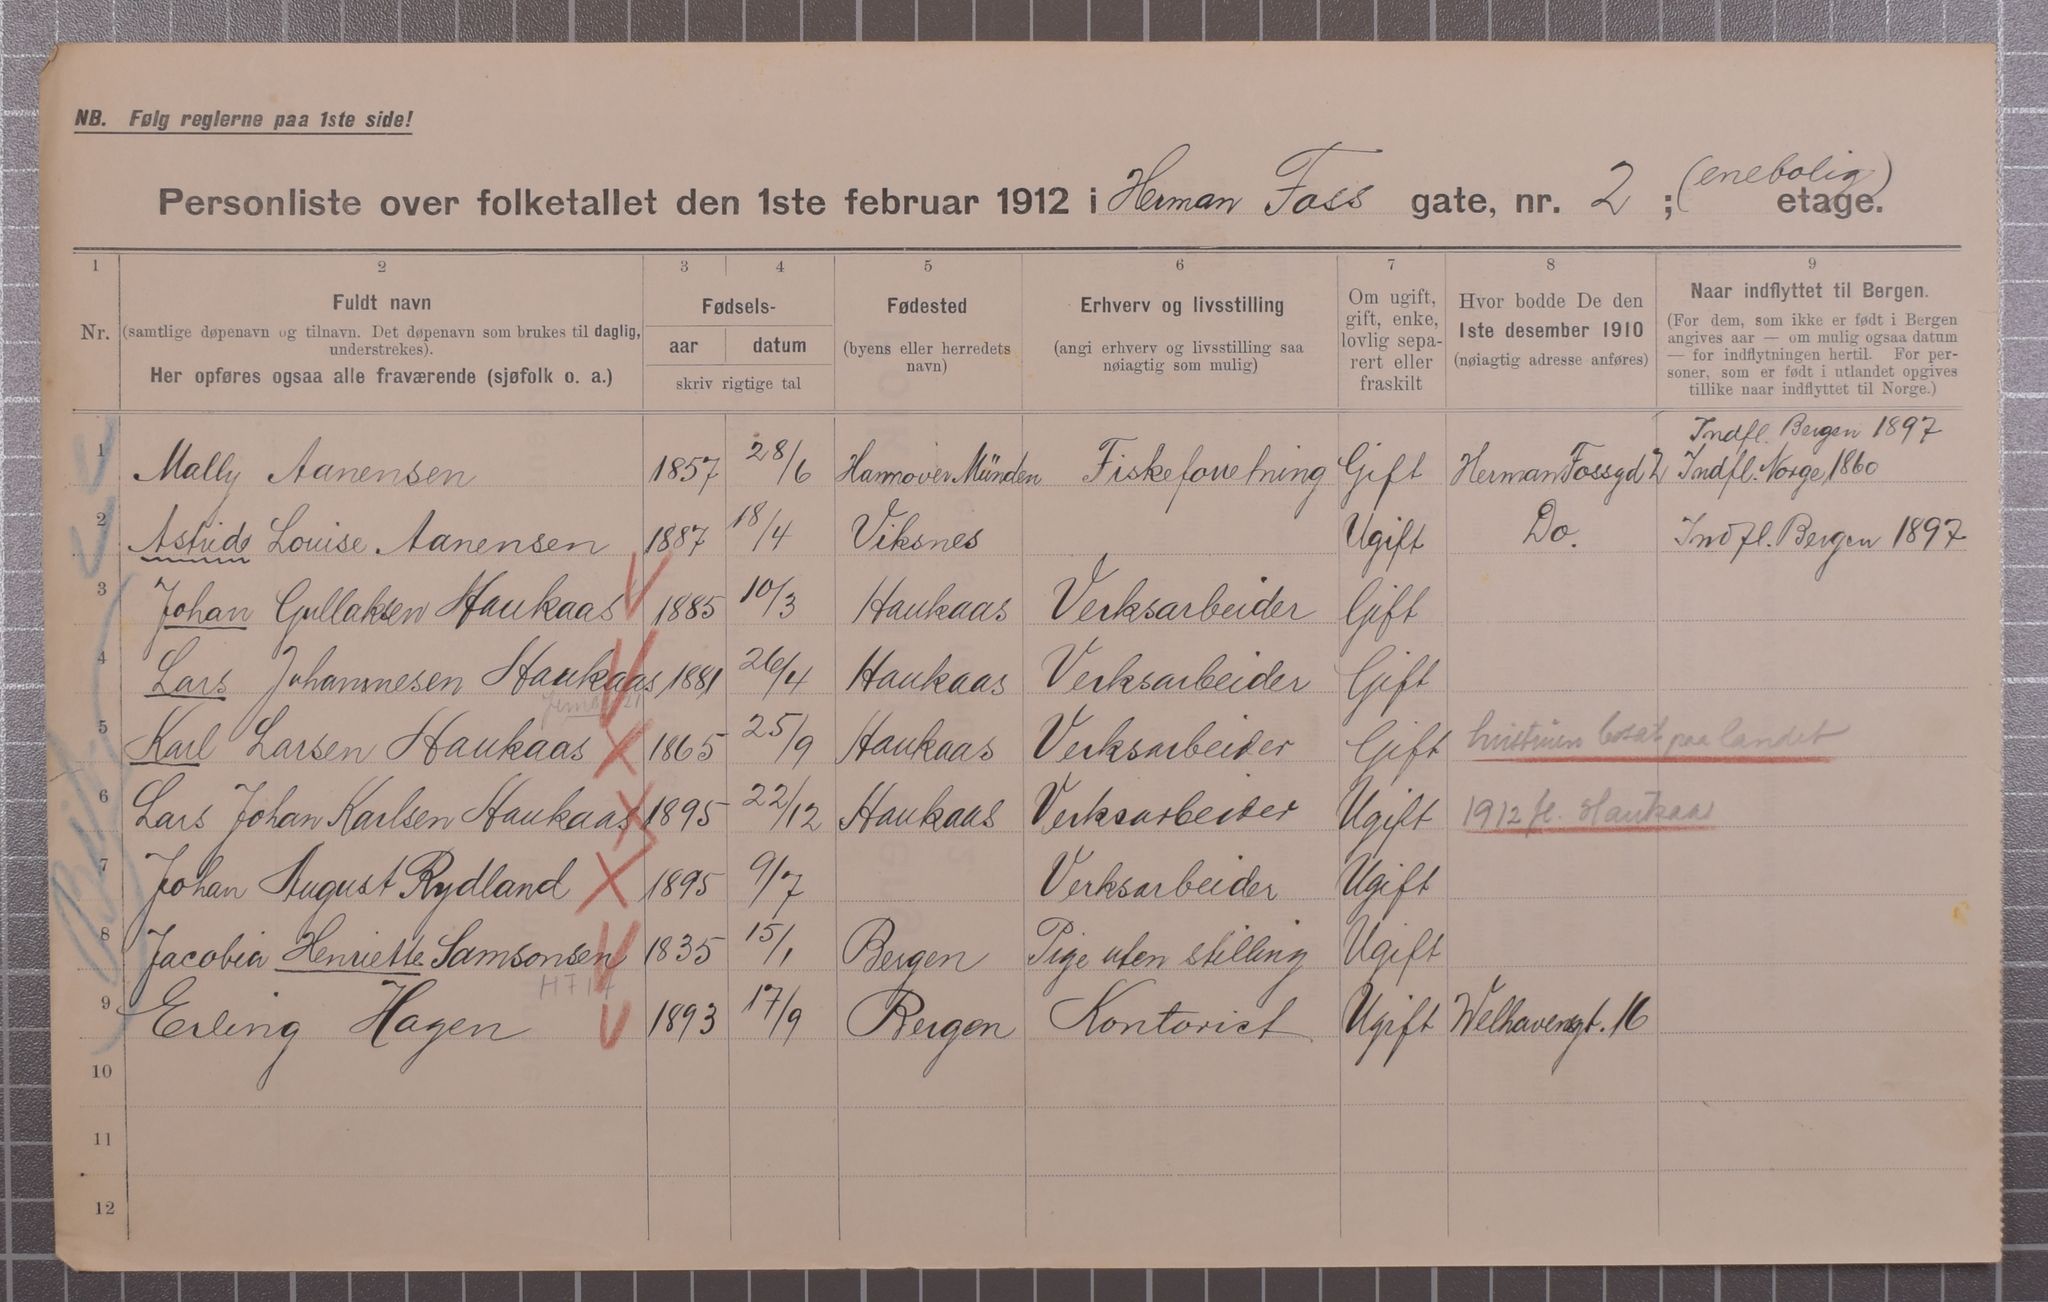 NB. Følg reglerne paa 1ste side!
Personliste over folketallet den 1ste februar 1912 i Herman Foss gate, nr. 2 ; (enebolig) etage.
1 2 3 4 5 6 7 8 9
Nr.
Fuldt navn
(samtlige døpenavn og tilnavn. Det døpenavn som brukes til daglig, understrekes).
Her opføres ogsaa alle fraværende (sjøfolk o. a.)
Fødsels-
aar datum
skriv rigtige tal
Fødested
(byens eller herredets navn)
Erhverv og livsstilling
(angi erhverv og livsstilling saa nøiagtig som mulig)
Om ugift, gift, enke, lovlig separert eller fraskilt
Hvor bodde De den
1ste desember 1910
(nøiagtig adresse anføres)
Naar indflyttet til Bergen.
(For dem, som ikke er født i Bergen angives aar — om mulig ogsaa datum — for indflytningen hertil. For personer, som er født i utlandet opgives tillike naar indflyttet til Norge.)
Indfl. Bergen 1897
1 Mally Aanensen 1857 28/6 Hannover Münden Fiskeforretning Gift Herman Fossgd 2 Indfl. Norge 1860
2 Astrid Louise Aanensen 1887 18/4 Viksnes Ugift Do. Indfl. Bergen 1897
3 Johan Gullaksen Haukaas 1885 10/3 Haukaas Verksarbeider Gift
4 Lars Johannesen Haukaas 1881 26/4 Haukaas Verksarbeider Gift
5 Karl Larsen Haukaas 1865 25/9 Haukaas Verksarbeider Gift hustruen bosat paa landet
6 Lars Johan Karlsen Haukaas 1895 22/12 Haukaas Verksarbeider Ugift 1912 fl. Haukaas
7 Johan August Rydland 1895 9/7 Verksarbeider Ugift
8 Jacobia Henriette Samsonsen 1835 15/1 Bergen Pige uten stilling Ugift
9 Erling Hagen 1893 17/9 Bergen Kontorist Ugift Welhavensgt. 16
10
11
12